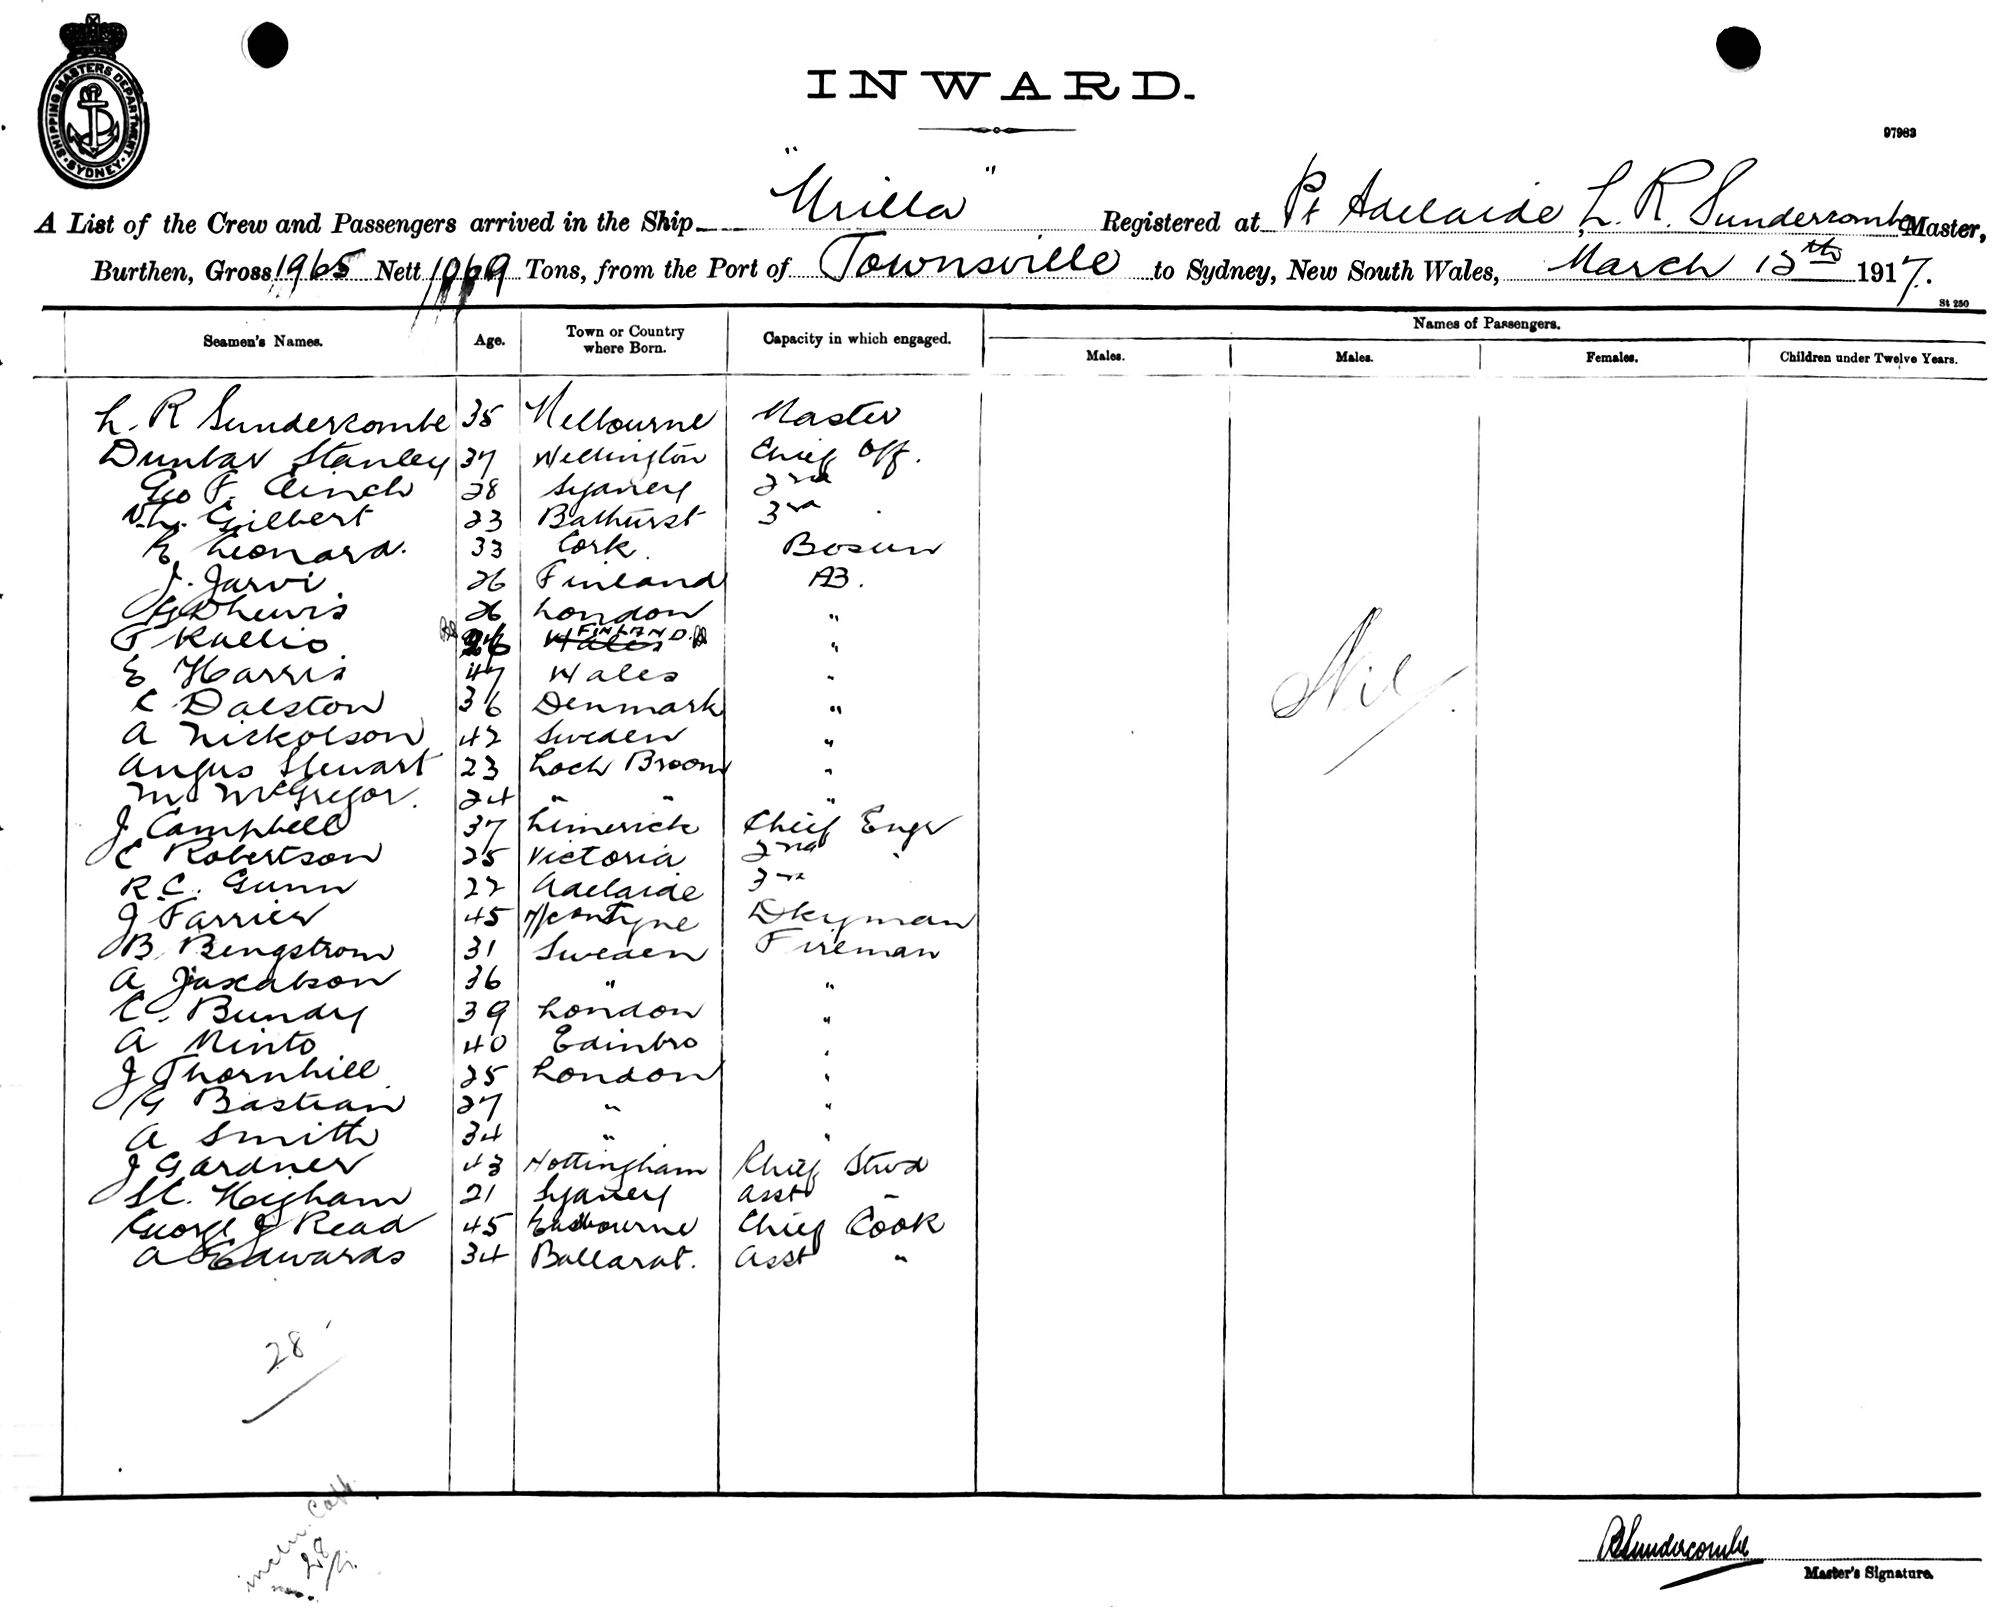 SHIPPING MASTERS DEPARTMENT. SYDNEY
INWARD.
97983
A List of the Crew and Passengers arrived in the Ship "Urilla" Registered at Pt Adelaide, L. R. Sundercombe Master,
Burthen, Gross 1965 Nett 1069 Tons, from the Port of Townsville to Sydney, New South Wales, March 15th 1917.
St 250
Seamen's Names. Age. Town or Country where Born. Capacity in which engaged. Names of Passengers.
Males. Males. Females. Children under Twelve Years.
L. R Sundercombe 35 Melbourne Master
Dunbar Stanley 37 Wellington Chief Off.
Geo F. Clinch 28 Sydney 2nd
Gilbert 23 Bathurst 3rd
Leonard. 33 Cork. Bosun
J. Jarvi 26 Finland AB.
Lewis 26 London "
Kallio FINLAND. "
E Harris 47 Wales "
C Dalston 36 Denmark "
A Nickolson 42 Sweden "
Angus Stewart 23 Loch Broom "
M McGregor. 24 " " "
J Campbell 37 Limerick Chief Engr
C Robertson 25 Victoria 2nd "
R.C. Gunn 22 Adelaide 3rd
J Farrier 45 Dkyman
B. Bengstrom 31 Sweden Fireman
A Jaxcabson 36 " "
C. Bundy 39 London "
A Minto 40 Edinbro "
J Thornhill 25 London "
G Bastian 27 " "
A Smith 34 " "
J Gardner 43 Nottingham Chief Stwd
S.C. Higham 21 Sydney Asst "
George J Read 45 Eastbourne Chief Cook
A Edwards 34 Ballarat. Asst "
Nil
28
28
Sundercombe
Master's Signature.